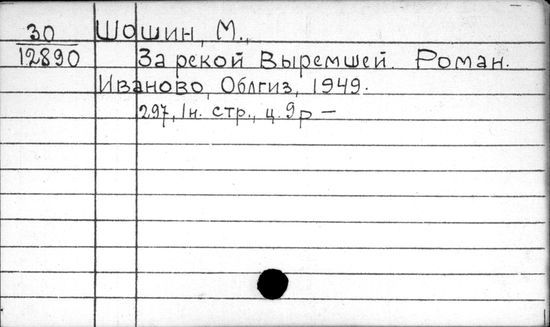 30 Шошин, М.,
12890 За рекой Выремшей. Роман.
Иваново, Облгиз, 1949.
297, 1н. стр., ц. 9р —